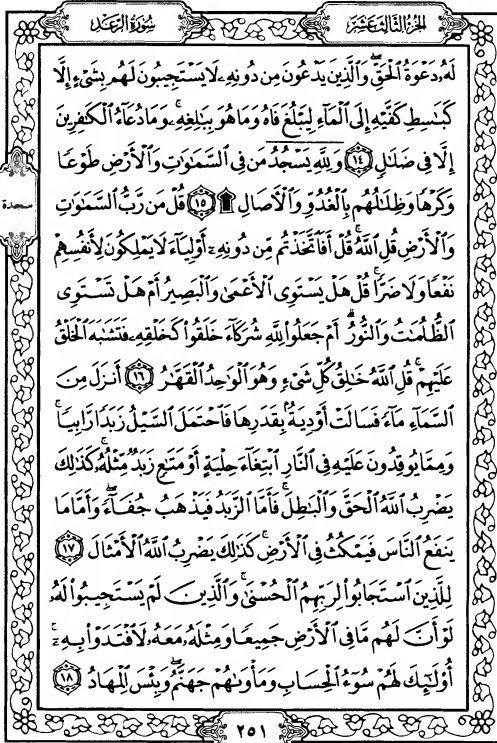 الجزء الثالث عشر
سورة الرعد
لَهُۥ دَعْوَةُ ٱلْحَقِّ ۖ وَٱلَّذِينَ يَدْعُونَ مِن دُونِهِۦ لَا يَسْتَجِيبُونَ لَهُم بِشَىْءٍ إِلَّا
كَبَٰسِطِ كَفَّيْهِ إِلَى ٱلْمَآءِ لِيَبْلُغَ فَاهُ وَمَا هُوَ بِبَٰلِغِهِۦ ۚ وَمَا دُعَآءُ ٱلْكَٰفِرِينَ
إِلَّا فِى ضَلَٰلٍ ١٤ وَلِلَّهِ يَسْجُدُ مَن فِى ٱلسَّمَٰوَٰتِ وَٱلْأَرْضِ طَوْعًا
وَكَرْهًا وَظِلَٰلُهُم بِٱلْغُدُوِّ وَٱلْءَاصَالِ ۩ ١٥ قُلْ مَن رَّبُّ ٱلسَّمَٰوَٰتِ
سجدة
وَٱلْأَرْضِ قُلِ ٱللَّهُ ۚ قُلْ أَفَٱتَّخَذْتُم مِّن دُونِهِۦٓ أَوْلِيَآءَ لَا يَمْلِكُونَ لِأَنفُسِهِمْ
نَفْعًا وَلَا ضَرًّا ۚ قُلْ هَلْ يَسْتَوِى ٱلْأَعْمَىٰ وَٱلْبَصِيرُ أَمْ هَلْ تَسْتَوِى
ٱلظُّلُمَٰتُ وَٱلنُّورُ ۗ أَمْ جَعَلُوا۟ لِلَّهِ شُرَكَآءَ خَلَقُوا۟ كَخَلْقِهِۦ فَتَشَٰبَهَ ٱلْخَلْقُ
عَلَيْهِمْ ۚ قُلِ ٱللَّهُ خَٰلِقُ كُلِّ شَىْءٍ وَهُوَ ٱلْوَٰحِدُ ٱلْقَهَّٰرُ ١٦ أَنزَلَ مِنَ
ٱلسَّمَآءِ مَآءً فَسَالَتْ أَوْدِيَةٌۢ بِقَدَرِهَا فَٱحْتَمَلَ ٱلسَّيْلُ زَبَدًا رَّابِيًا ۚ
وَمِمَّا يُوقِدُونَ عَلَيْهِ فِى ٱلنَّارِ ٱبْتِغَآءَ حِلْيَةٍ أَوْ مَتَٰعٍ زَبَدٌ مِّثْلُهُۥ ۚ كَذَٰلِكَ
يَضْرِبُ ٱللَّهُ ٱلْحَقَّ وَٱلْبَٰطِلَ ۚ فَأَمَّا ٱلزَّبَدُ فَيَذْهَبُ جُفَآءً ۖ وَأَمَّا مَا
يَنفَعُ ٱلنَّاسَ فَيَمْكُثُ فِى ٱلْأَرْضِ ۚ كَذَٰلِكَ يَضْرِبُ ٱللَّهُ ٱلْأَمْثَالَ ١٧
لِلَّذِينَ ٱسْتَجَابُوا۟ لِرَبِّهِمُ ٱلْحُسْنَىٰ ۚ وَٱلَّذِينَ لَمْ يَسْتَجِيبُوا۟ لَهُۥ
لَوْ أَنَّ لَهُم مَّا فِى ٱلْأَرْضِ جَمِيعًا وَمِثْلَهُۥ مَعَهُۥ لَٱفْتَدَوْا۟ بِهِۦٓ ۚ
أُو۟لَٰٓئِكَ لَهُمْ سُوٓءُ ٱلْحِسَابِ وَمَأْوَىٰهُمْ جَهَنَّمُ ۖ وَبِئْسَ ٱلْمِهَادُ ١٨
٢٥١